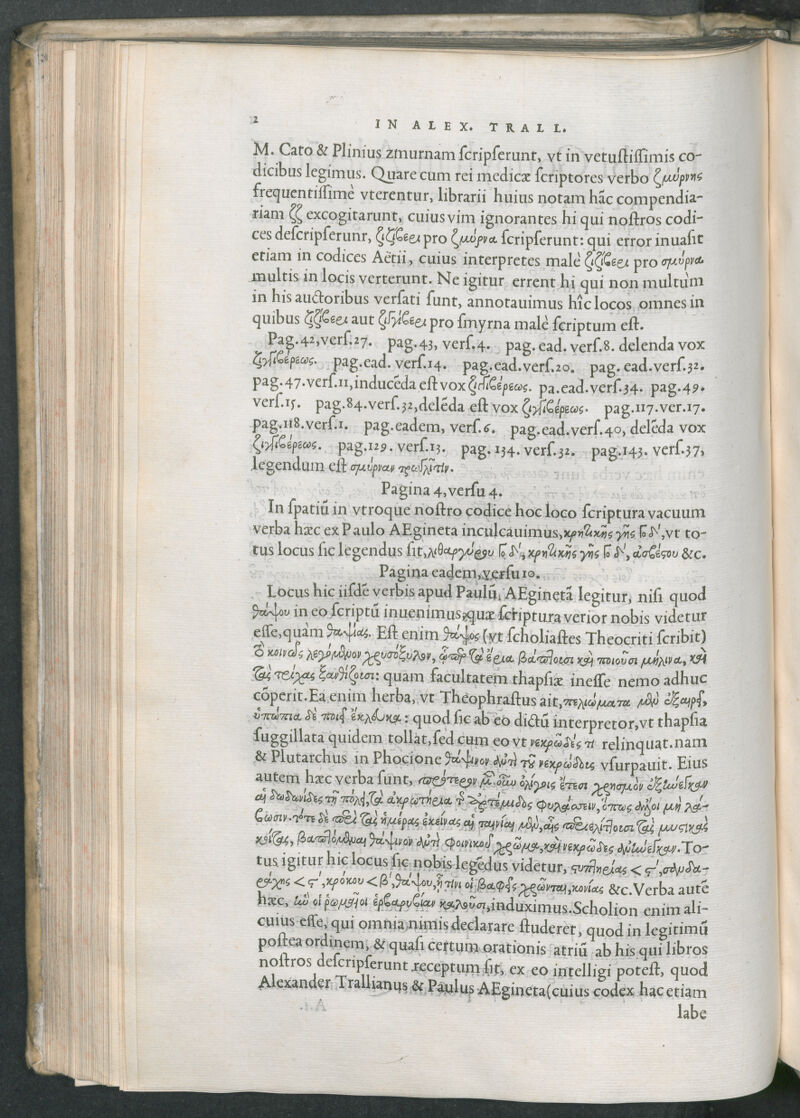 2
IN ALEX. TRALL.
M. Cato & Plinius zmurnam ſcripſerunt, vt in vetuſtiſſimis co-
dicibus legimus. Quare cum rei medicæ ſcriptores verbo ζμύρνης
frequentiſſimè vterentur, librarii huius notam hãc compendia-
riam ζζ excogitarunt, cuius vim ignorantes hi qui noſtros codi-
ces deſcripſerunr, ζιζίβερι pro ζμύρνα ſcripſerunt: qui error inuaſit
etiam in codices Aëtii, cuius interpretes malè ζιζίβερι pro σμύρνα
multis in locis verterunt. Ne igitur errent hi qui non multùm
in his auctoribus verſati ſunt, annotauimus hîc locos omnes in
quibus ζιζίβερι aut ζιγγίβερι pro ſmyrna malè ſcriptum eſt.
Pag.42,verſ.27. pag.43, verſ.4. pag. ead. verſ.8. delenda vox
ζιγγιβέρεως. pag.ead. verſ.14. pag.ead.verſ.20. pag. ead.verſ.32.
pag.47.verſ.11,inducẽda eſt vox ζιγγιβέρεως. pa.ead.verſ.34. pag.49.
verſ.15. pag.84.verſ.32,delẽda eſt vox ζιγγιβέρεως. pag.117.ver.17.
pag.118.verſ.1. pag.eadem, verſ.6. pag.ead.verſ.40, delẽda vox
ζιγγιβέρεως. pag.129. verſ.13. pag. 134. verſ.32. pag.143. verſ.37,
legendum eſt σμύρναν τρωγλῖτιν.
Pagina 4,verſu 4.
In ſpatiũ in vtroque noſtro codice hoc loco ſcriptura vacuum
verba hæc ex Paulo AEgineta inculcauimus,κρητικῆς γῆς δ',vt to-
tus locus ſic legendus ſit,λιθαργύρου δ', κρητικῆς γῆς δ', ἀσβέστου &c.
Pagina eadem,verſu 10.
Locus hic iiſdẽ verbis apud Paulũ, AEginetã legitur, niſi quod
θάψου in eo ſcriptũ inuenimus,quæ ſcriptura verior nobis videtur
eſſe,quàm θαψίας. Eſt enim θάψος (vt ſcholiaſtes Theocriti ſcribit)
τὸ κοινῶς λεγόμενον χρυσόξυλον, ᾧπερ τὰ ἔρια βάπτουσι καὶ ποιοῦσι μήλινα, καὶ
τὰς τρίχας ξανθίζουσι: quam facultatem thapſiæ ineſſe nemo adhuc
cõperit.Ea enim herba, vt Theophraſtus ait,πελιώματα μὲν ἐξαιρεῖ,
ὑπώπια δὲ ποιεῖ ἔκλευκα: quod ſic ab eo dictũ interpretor,vt thapſia
ſuggillata quidem tollat,ſed cum eo vt νεκρῶδές τι relinquat.nam
& Plutarchus in Phocione θάψινον ἀντὶ τοῦ νεκρώδους vſurpauit. Eius
autem hæc verba ſunt, πρότερον μὲν οὖν ὀλίγοις ἔτεσι χρησμὸν ἐξήνεγκαν
αἱ δωδωνίδες τῇ πόλει,τὰ ἀκρωτήρια τῆς ἀρτέμιδος φυλάσσειν,ὅπως ἄλλοι μὴ λά-
βωσιν.τότε δὲ περὶ τὰς ἡμέρας ἐκείνας αἱ ταινίαι μὲν,αἷς περιελίττουσι τὰς μυστικὰς
κοίτας, βαπτόμεναι θάψινον ἀντὶ φοινικοῦ χρῶμα,καὶ νεκρῶδες ἀνήνεγκαν.To-
tus igitur hic locus ſic nobis legẽdus videtur, στυπτηρίας < ς', σανδα-
ράχης < ς', κρόκου < β', θάψου,ᾗτινι οἱ βαφεῖς χρῶνται,κονίας &c.Verba autẽ
hæc, ἣν οἱ ῥωμαῖοι ἑρβαρυβίαν καλοῦσι,induximus.Scholion enim ali-
cuius eſſe, qui omnia nimis declarare ſtuderet, quod in legitimũ
poſtea ordinem, & quaſi certum orationis atriũ ab his qui libros
noſtros deſcripſerunt receptum ſit, ex eo intelligi poteſt, quod
Alexander Trallianus & Paulus AEgineta(cuius codex hac etiam
labe